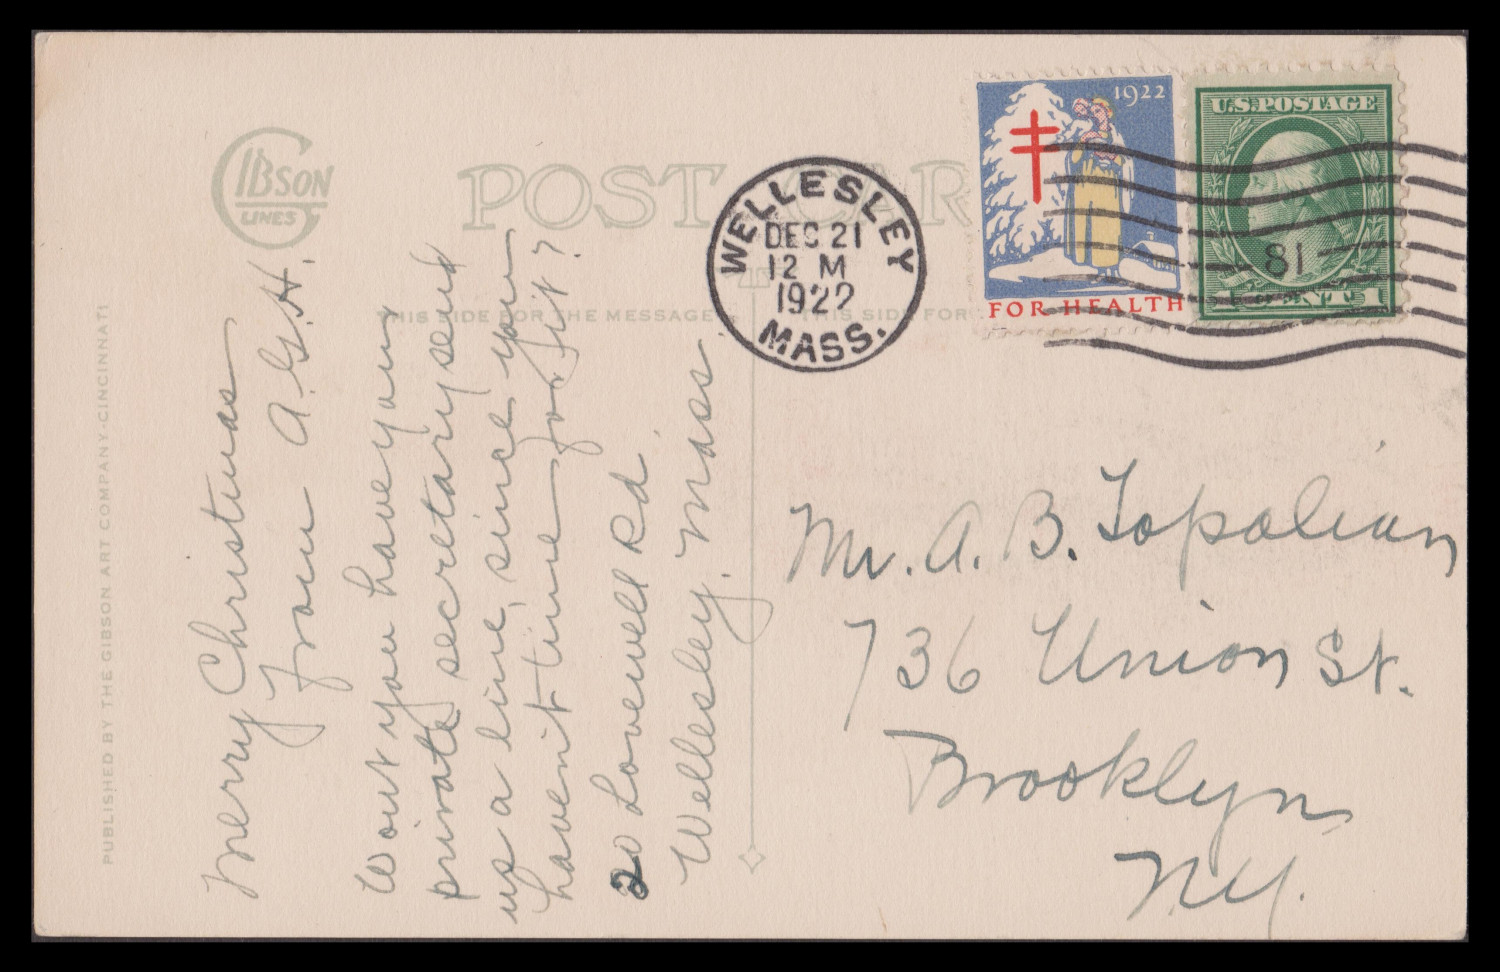 GIBSON
LINES
POST CAR
THIS SIDE FOR THE MESSAGE
THIS SIDE FOR
PUBLISHED BY THE GIBSON ART COMPANY-CINCINNATI
WELLESLEY
DEC 21
12 M
1922
MASS.
1922
FOR HEALTH
U.S. POSTAGE
81
CENT 1
Merry Christmas
from A.G.H.
Won't you have your
private secretary send
us a line, since you
haven't time for it?
20 Lovewell Rd.
Wellesley. Mass.
Mr. A. B. Topalian
736 Union St.
Brooklyn
N.Y.